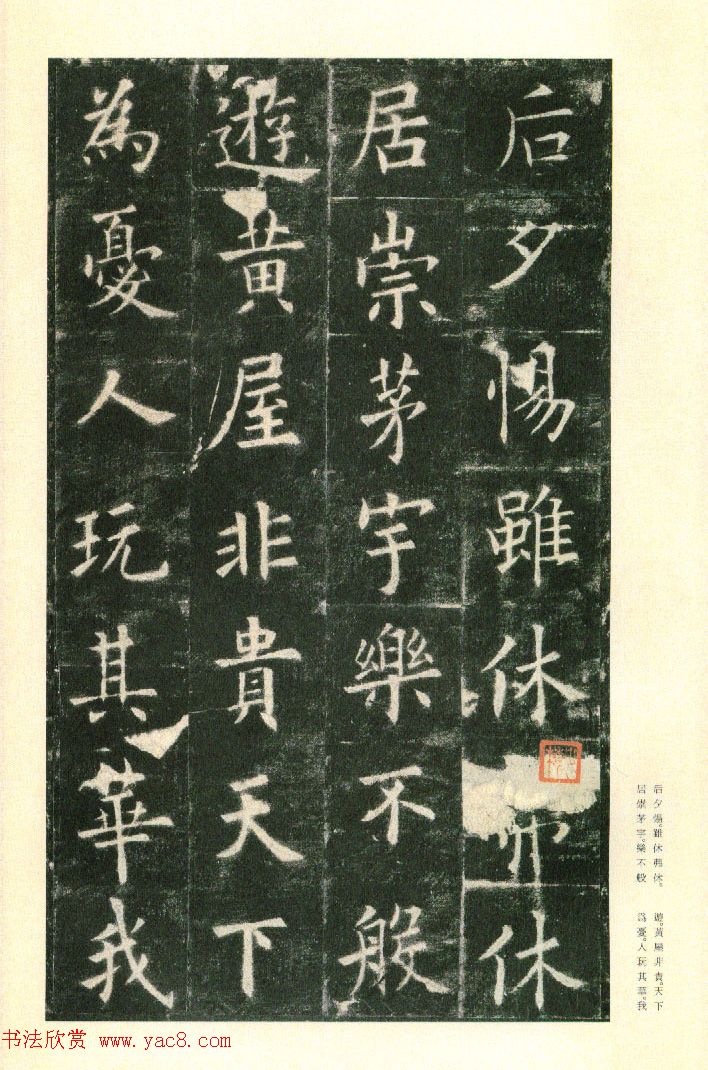 后夕惕雖休弗休
居崇茅宇樂不般
遊黃屋非貴天下
為憂人玩其華我
后夕惕。雖休弗休。
居崇茅宇。樂不般
遊。黃屋非貴。天下
爲憂。人玩其華。我
书法欣赏 www.yac8.com